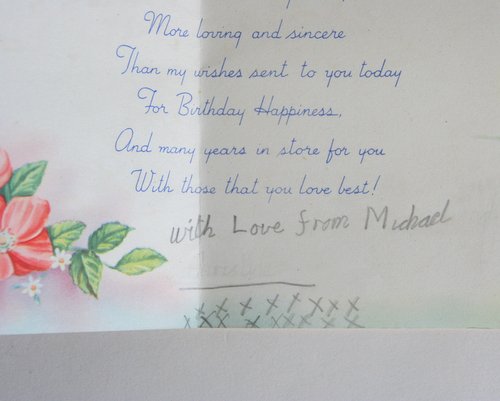 More loving and sincere
Than my wishes sent to you today
For Birthday Happiness,
And many years in store for you
With those that you love best!
with Love from Michael
x x x x x x x x
x x x x x x x x x